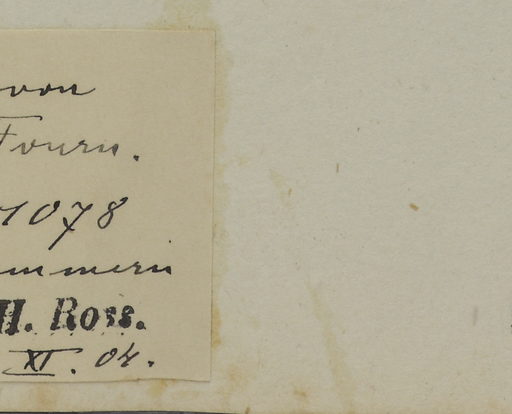 von
Fourn.
1078
ummern
H. Ross.
XI. 04.